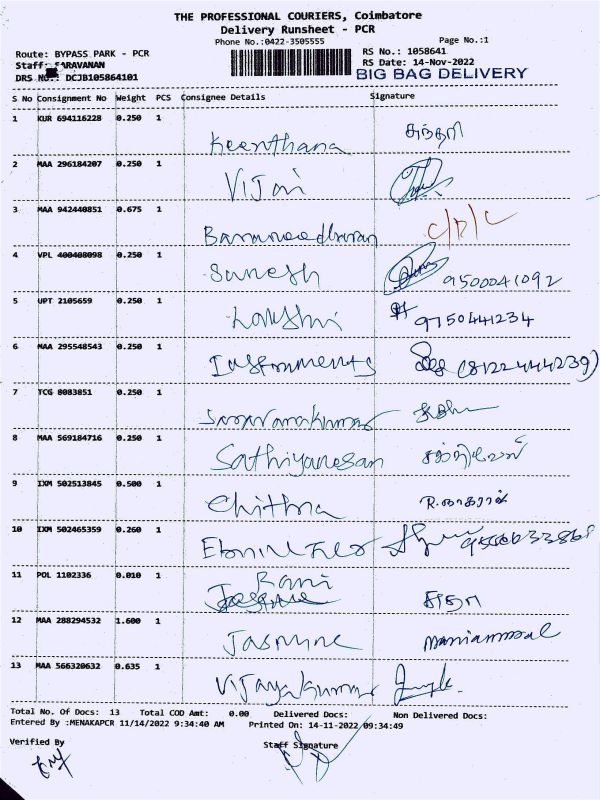 THE PROFESSIONAL COURIERS, Coimbatore
Delivery Runsheet - PCR
Phone No.:0422-3505555 Page No.:1
Route: BYPASS PARK - PCR RS No.: 1058641
Staff: SARAVANAN RS Date: 14-Nov-2022
DRS No.: DCJB105864101 BIG BAG DELIVERY
S No Consignment No Weight PCS Consignee Details Signature
1 KUR 694116228 0.250 1
Keerthana
2 MAA 296184207 0.250 1
Vijai
3 MAA 942440851 0.675 1
C/D/C
4 VPL 400408098 0.250 1
Suresh 9500041092
5 UPT 2105659 0.250 1
Lakshmi 9750441234
6 MAA 295548543 0.250 1
Instruments (8122444239)
7 TCG 8083851 0.250 1
Saravanakumar
8 MAA 569184716 0.250 1
Sathiyanesan
9 IXM 502513845 0.500 1
Chithra
10 IXM 502465359 0.260 1
11 POL 1102336 0.010 1
Rani
12 MAA 288294532 1.600 1
Jasmine Mariammal
13 MAA 566320632 0.635 1
Vijayakumar
Total No. Of Docs: 13 Total COD Amt: 0.00 Delivered Docs: Non Delivered Docs:
Entered By :MENAKAPCR 11/14/2022 9:34:40 AM Printed On: 14-11-2022 09:34:49
Verified By Staff Signature